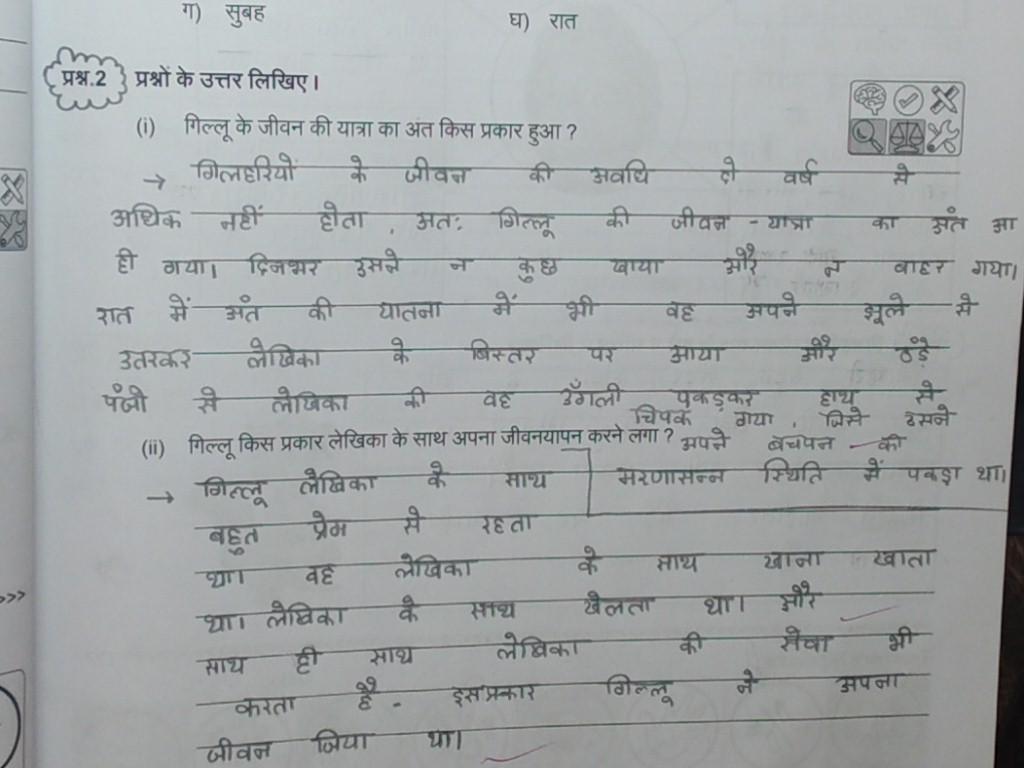 ग) सुबह घ) रात
प्रश्न.2 प्रश्नों के उत्तर लिखिए।
(i) गिल्लू के जीवन की यात्रा का अंत किस प्रकार हुआ ?
→ गिलहरियों के जीवन की अवधि दो वर्ष से
अधिक नहीं होता , अतः गिल्लू की जीवन - यात्रा का अंत आ
ही गया। दिनभर उसने न कुछ खाया और न बाहर गया।
रात में अंत की यातना में भी वह अपने झूले से
उतरकर लेखिका के बिस्तर पर आया और ठंडे
पंजो से लेखिका की वह उँगली पकड़कर हाथ से
चिपक गया , जिसे उसने
अपने बचपन की
मरणासन्न स्थिति में पकड़ा था।
(ii) गिल्लू किस प्रकार लेखिका के साथ अपना जीवनयापन करने लगा ?
→ गिल्लू लेखिका के साथ
बहुत प्रेम से रहता
था। वह लेखिका के साथ खाना खाता
था। लेखिका के साथ खेलता था। और
साथ ही साथ लेखिका की सेवा भी
करता है - इसप्रकार गिल्लू ने अपना
जीवन जिया था।
>>>